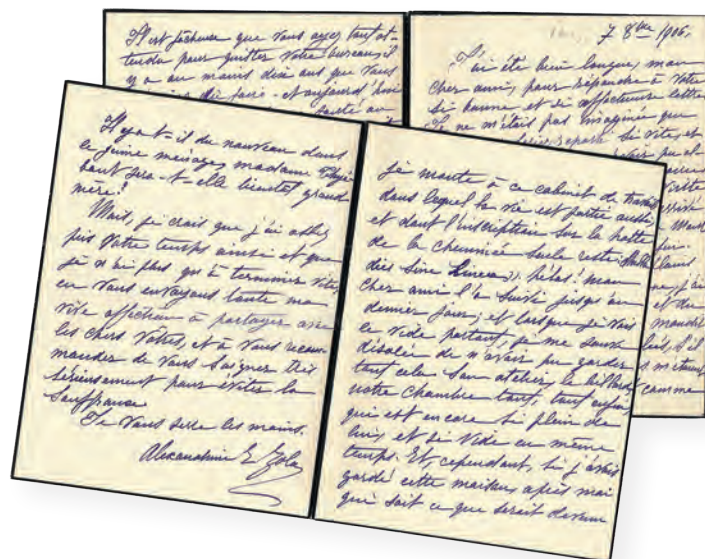 Il est fâcheux que vous ayez tant at-
tendu pour quitter votre bureau, il
y a au moins dix ans que vous
dû faire - et aujourd'hui
santé au
7 8bre 1906.
J'ai été bien longue, mon
cher ami, pour répondre à votre
si bonne et si affectueuse lettre
Je ne m'étais pas imaginée que
reparti si vite, et
comme
Y a-t-il du nouveau dans
le jeune ménage, madame Thyé-
baut sera-t-elle bientôt grand'
mère?
Mais, je crois que j'ai assez
pris votre temps ainsi et que
je n'ai plus qu'à terminer vite,
en vous envoyant toute ma
vive affection à partager avec
les chers vôtres, et à vous recom-
mander de vous soigner très
sérieusement pour éviter la
souffrance.
Je vous serre les mains.
Alexandrine E Zola
je monte à ce cabinet de travail
dans lequel la vie est partie aussi
et dont l'inscription sur la hotte
de la cheminée seule reste: Nulla
dies sine Linea", hélas! mon
cher ami l'a suivie jusqu'au
dernier jour; et lorsque je vois
le vide partout, je me sens
désolée de n'avoir pu garder
tout cela son atelier, le billard,
notre chambre tout, tout enfin,
qui est encore si plein de
lui, et si vide en même
temps. Et, cependant, si j'avais
gardé cette maison, après moi
qui sait ce que serait devenu